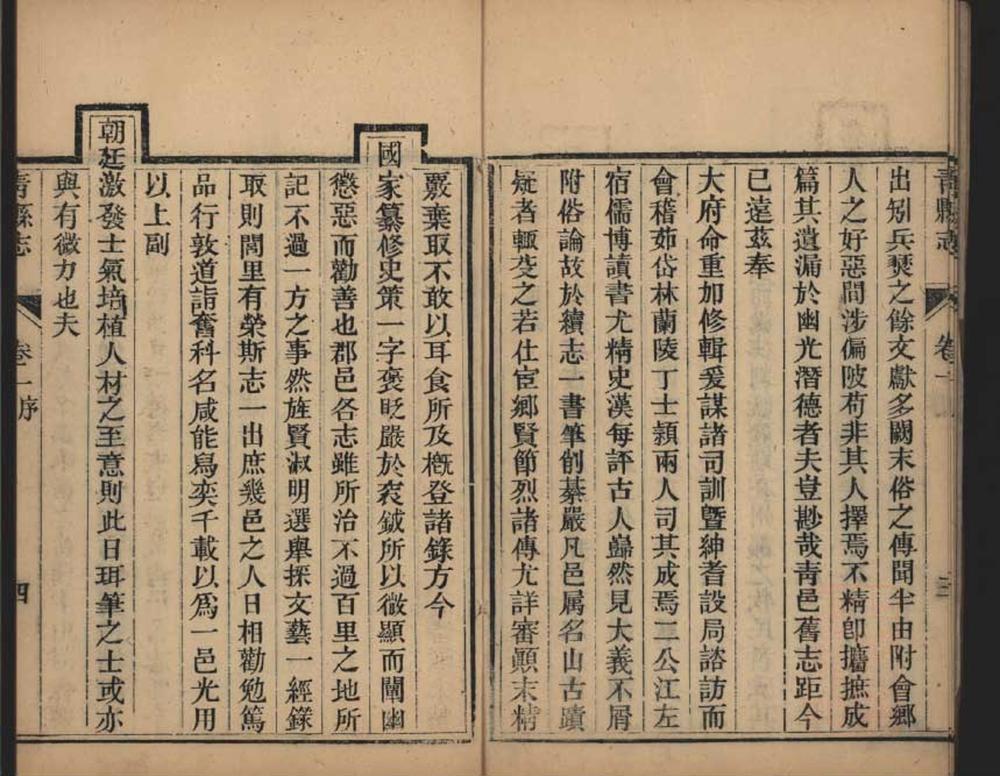 青縣志 卷一 三
出矧兵燹之餘文獻多闕末俗之傳聞半由附會鄉
人之好惡間涉偏陂苟非其人擇焉不精卽攟摭成
篇其遺漏於幽光潛德者夫豈尠哉靑邑舊志距今
已遠茲奉
大府命重加修輯爰謀諸司訓曁紳耆設局諮訪而
會稽茹岱林蘭陵丁士顈兩人司其成焉二公江左
宿儒博讀書尤精史漢每評古人巋然見大義不屑
附俗論故於續志一書筆削綦嚴凡邑属名山古蹟
疑者輒芟之若仕宦鄉賢節烈諸傳尤詳審顚末精
覈棄取不敢以耳食所及槪登諸錄方今
國家纂修史策一字褒貶嚴於衮鉞所以微顯而闡幽
懲惡而勸善也郡邑各志雖所治不過百里之地所
記不過一方之事然旌賢淑明選舉採文藝一經錄
取則閭里有榮斯志一出庶幾邑之人日相勸勉篤
品行敦道誼奮科名咸能焉奕千載以爲一邑光用
以上副
朝廷激發士氣培植人材之至意則此日珥筆之士或亦
與有微力也夫
靑縣志 卷一序 四